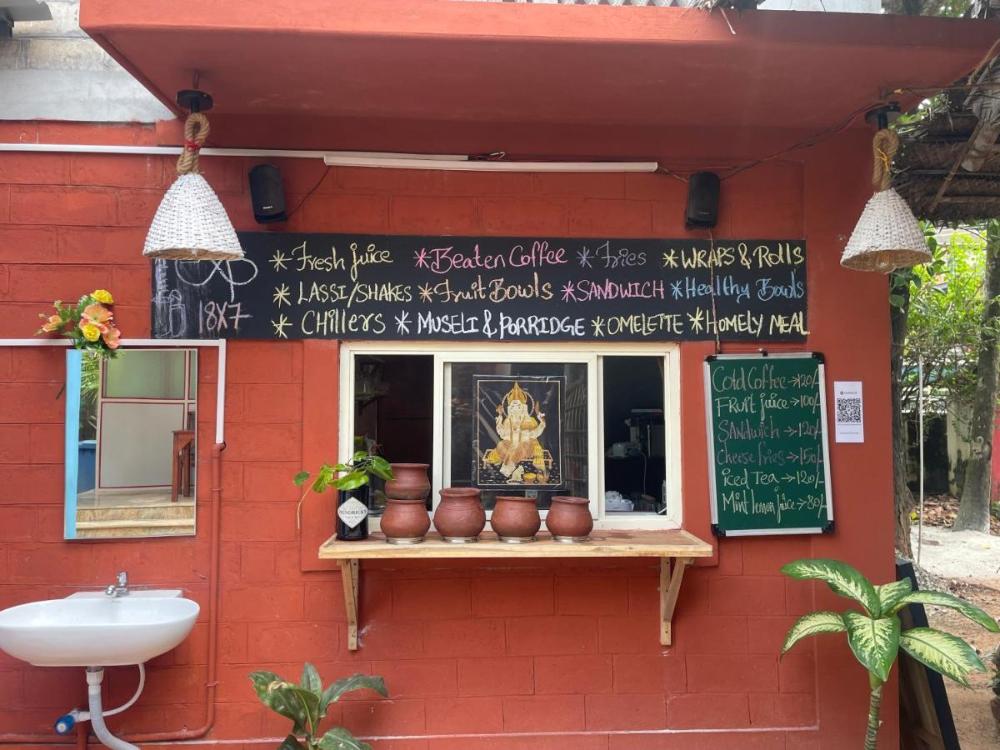 * Fresh juice * Beaten Coffee * Fries * WRAPS & Rolls
* LASSI/SHAKES * Fruit Bowls * SANDWICH * Healthy Bowls
18X7 * Chillers * MUSELI & PORRIDGE * OMELETTE * HOMELY MEAL
Cold Coffee → 120/-
Fruit juice → 100/-
Sandwich → 120/-
Cheese fries → 150/-
iced Tea → 120/-
Mint lemon juice → 80/-
HENDRICK'S